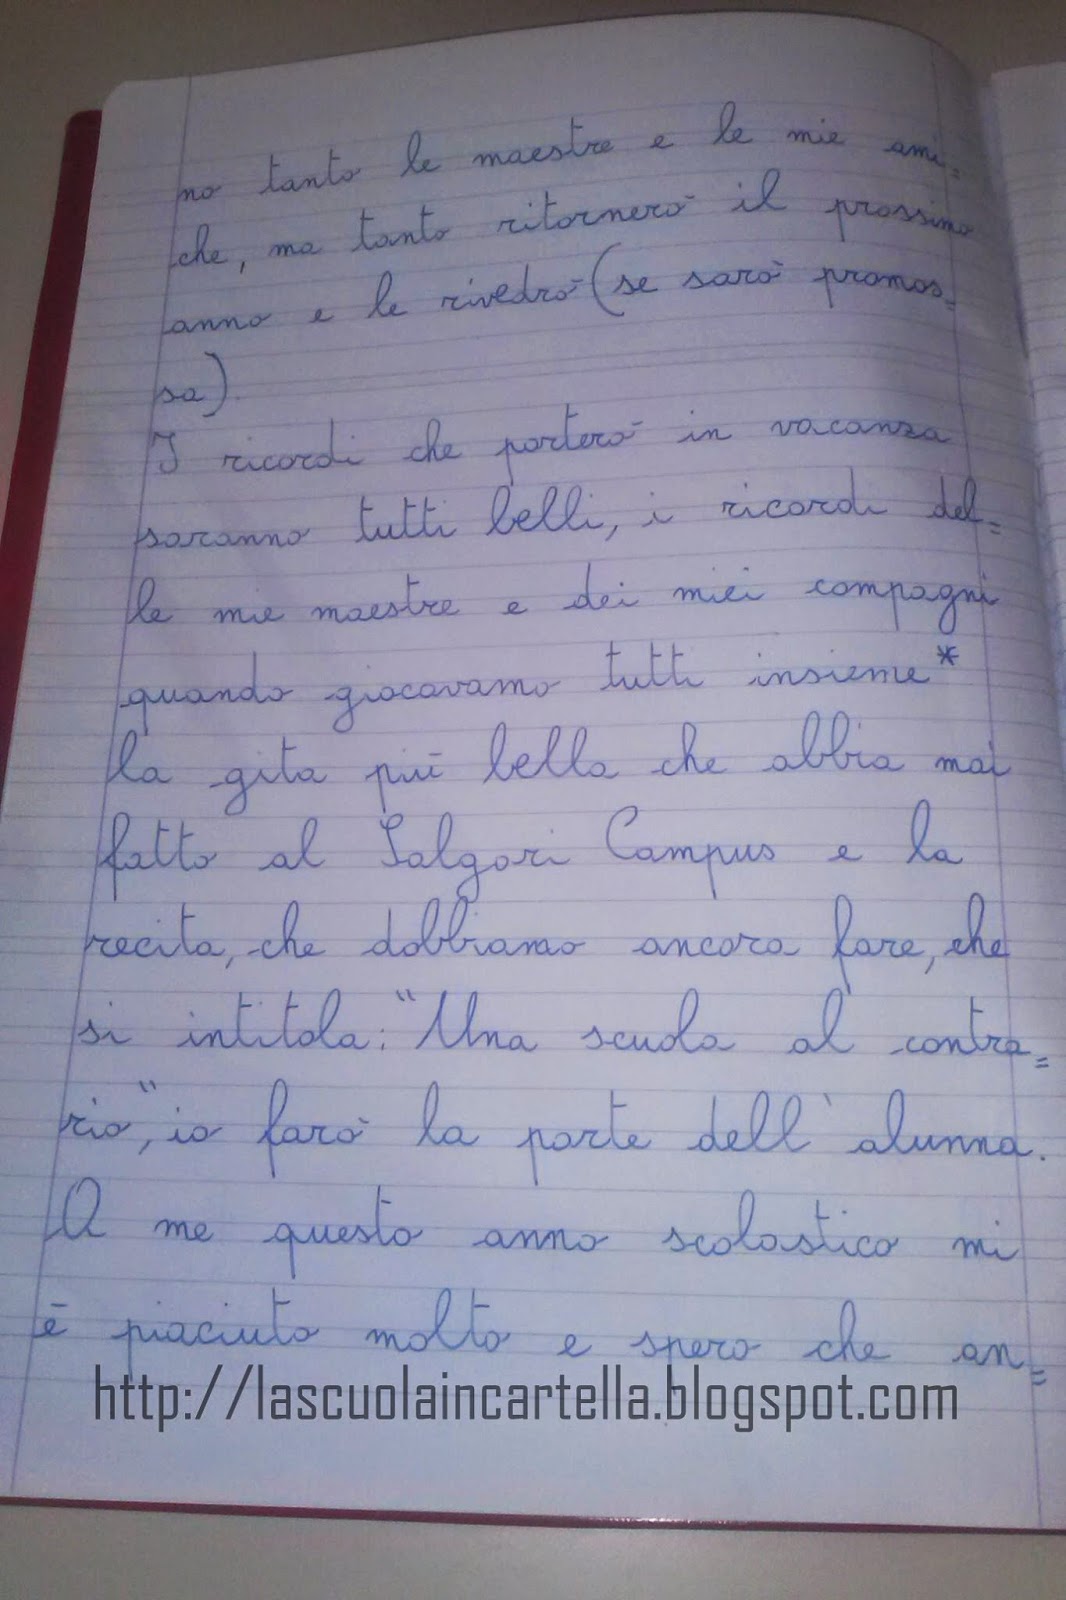 no tanto le maestre e le mie ami=
che, ma tanto ritornerò il prossimo
anno e le rivedrò (se sarò promos=
sa).
I ricordi che porterò in vacanza
saranno tutti belli, i ricordi del=
le mie maestre e dei miei compagni
quando giocavamo tutti insieme*
la gita più bella che abbia mai
fatto al Salgari Campus e la
recita, che dobbiamo ancora fare, che
si intitola: "Una scuola al contra=
rio", io farò la parte dell'alunna.
A me questo anno scolastico mi
è piaciuto molto e spero che an=
http://lascuolaincartella.blogspot.com